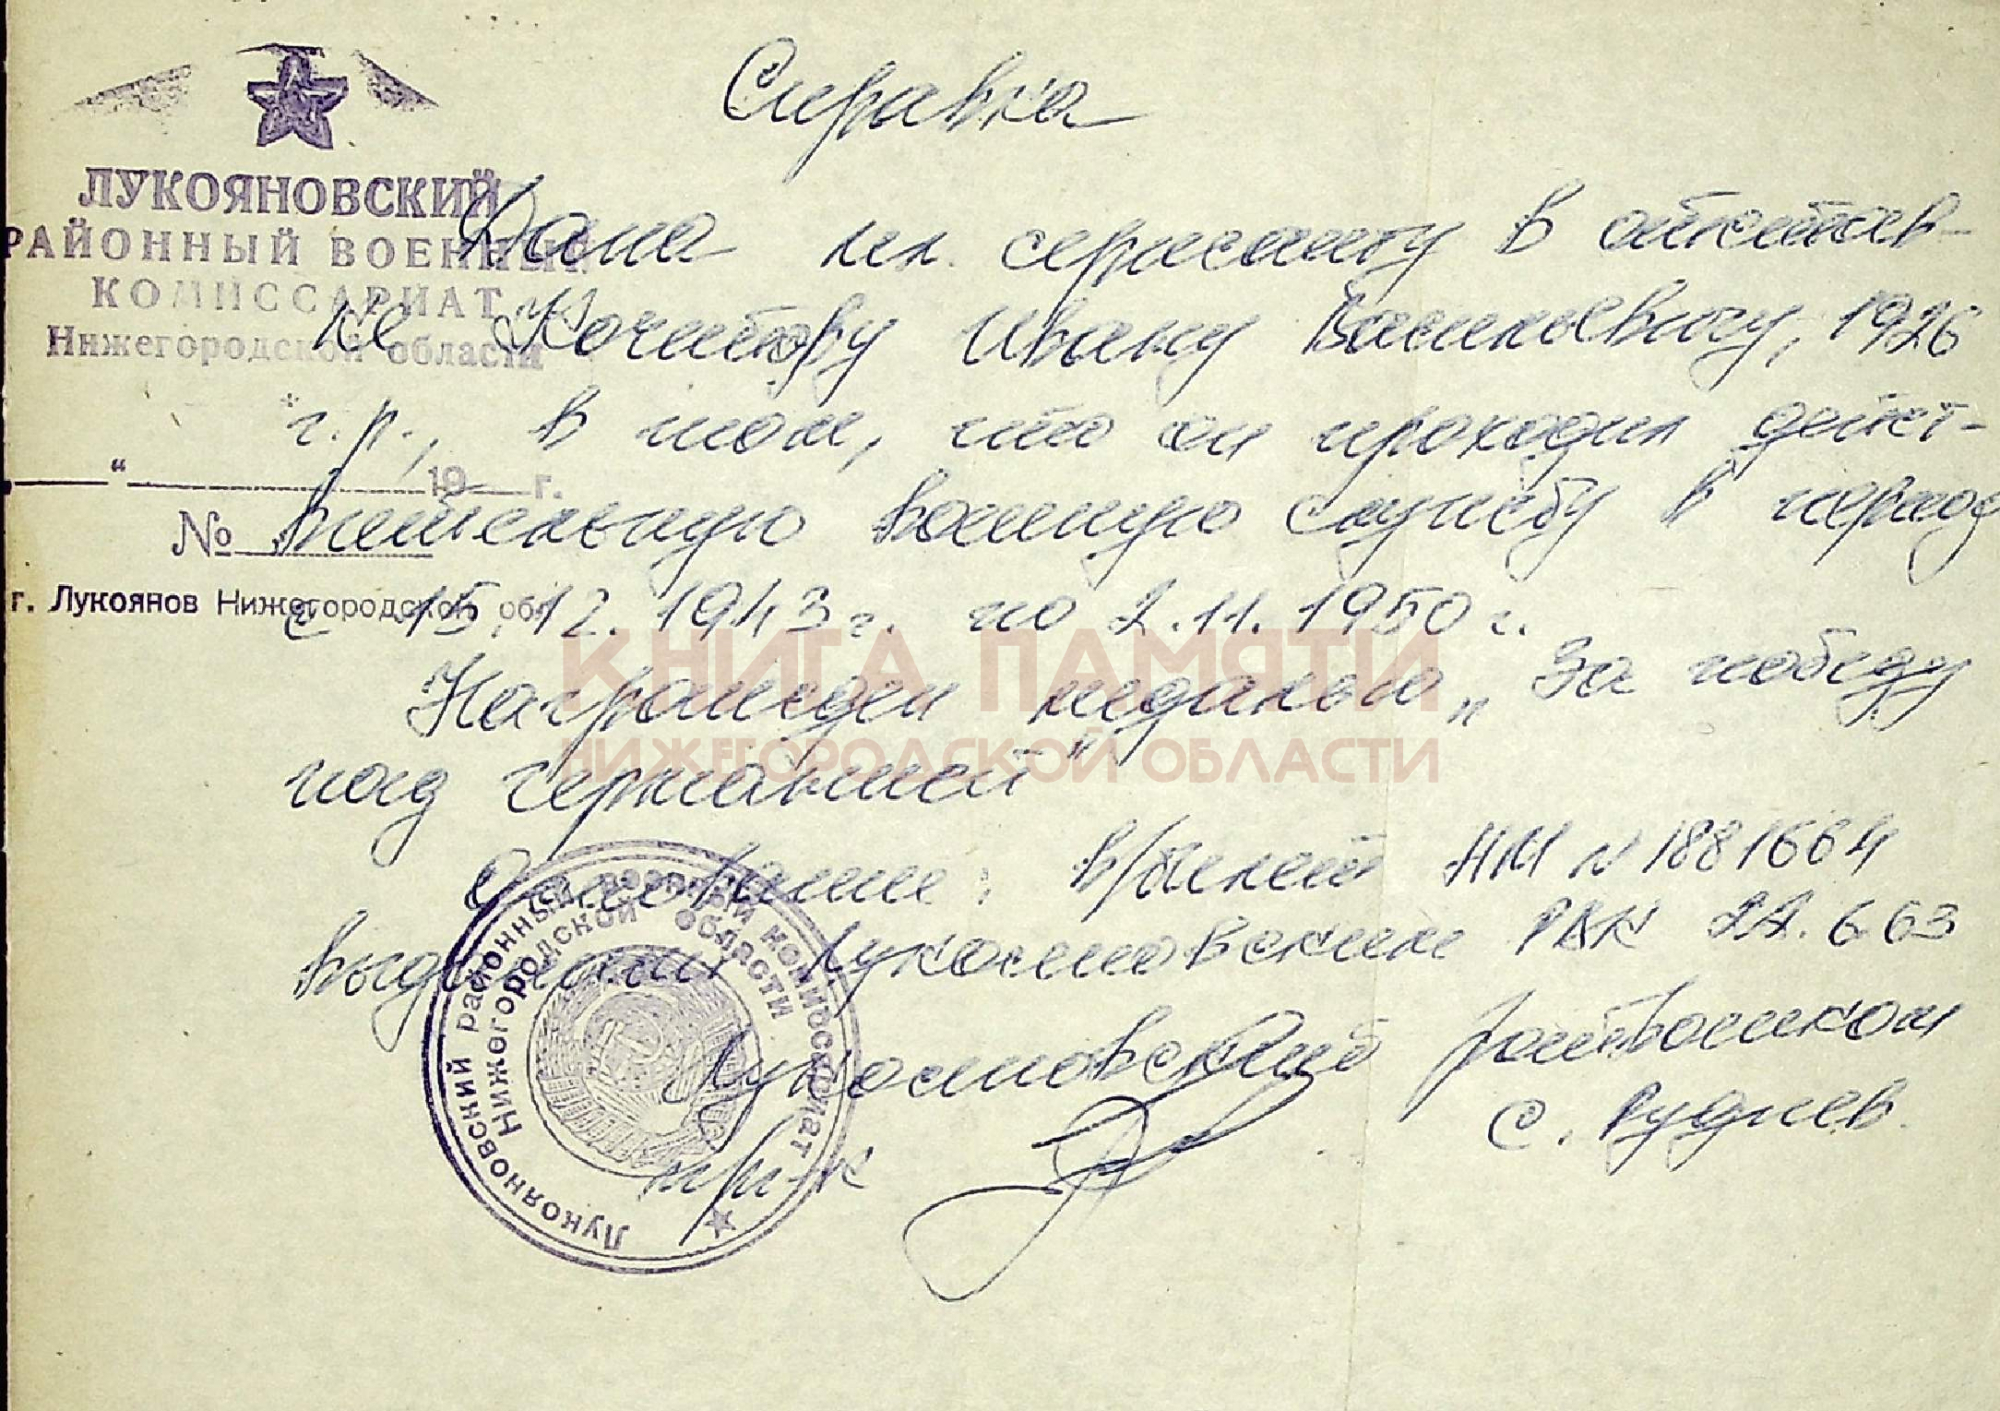 Справка
ЛУКОЯНОВСКИЙ
РАЙОННЫЙ ВОЕННЫЙ
КОМИССАРИАТ
Нижегородской области
"
19 г.
№
г. Лукоянов Нижегородской обл.
Дана мл. сержанту в отстав-
ке Ивану Васильевичу, 1926
г.р., в том, что он проходил дейст-
вительную военную службу в период
с 15.12.1943 г. по 2.11.1950 г.
Награжден медалью „За победу
над Германией"
Основание: в/билет НМ № 1881664
выданный Лукояновским РВК 22.6.63
Лукояновский райвоенком
п/п-к С. Руднев.
Лукояновский районный военный комиссариат
Нижегородской области
КНИГА ПАМЯТИ
НИЖЕГОРОДСКОЙ ОБЛАСТИ